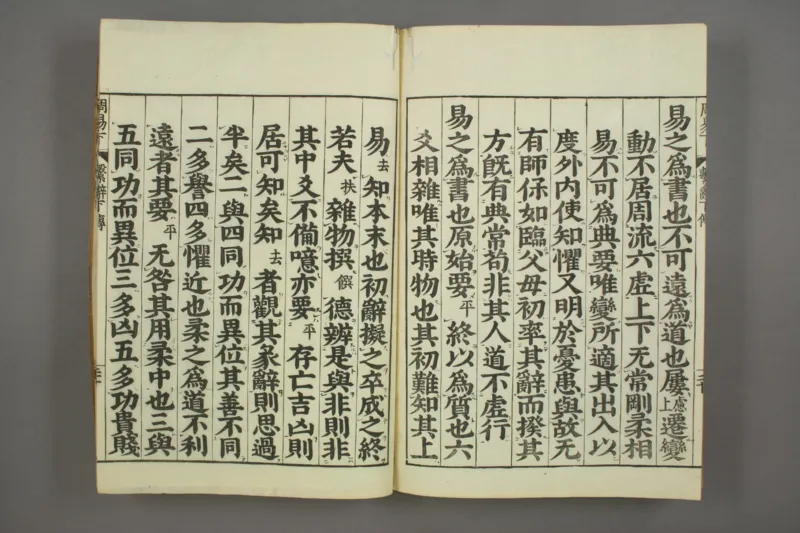 易之為書也不可遠為道也屢慮上遷變
動不居周流六虛上下无常剛柔相
易不可為典要唯變所適其出入以
度外内使知懼又明於憂患與故无
有師保如臨父母初率其辭而揆其
方旣有典常苟非其人道不虛行
易之為書也原始要平終以為質也六
爻相雜唯其時物也其初難知其上
易去知本末也初辭擬之卒成之終
若夫扶雜物撰饌德辨是與非則非
其中爻不備噫亦要平存亡吉凶則
居可知矣知去者觀其彖辭則思過
半矣二與四同功而異位其善不同
二多譽四多懼近也柔之為道不利
遠者其要平无咎其用柔中也三與
五同功而異位三多凶五多功貴賤
周易下
繫辭下傳